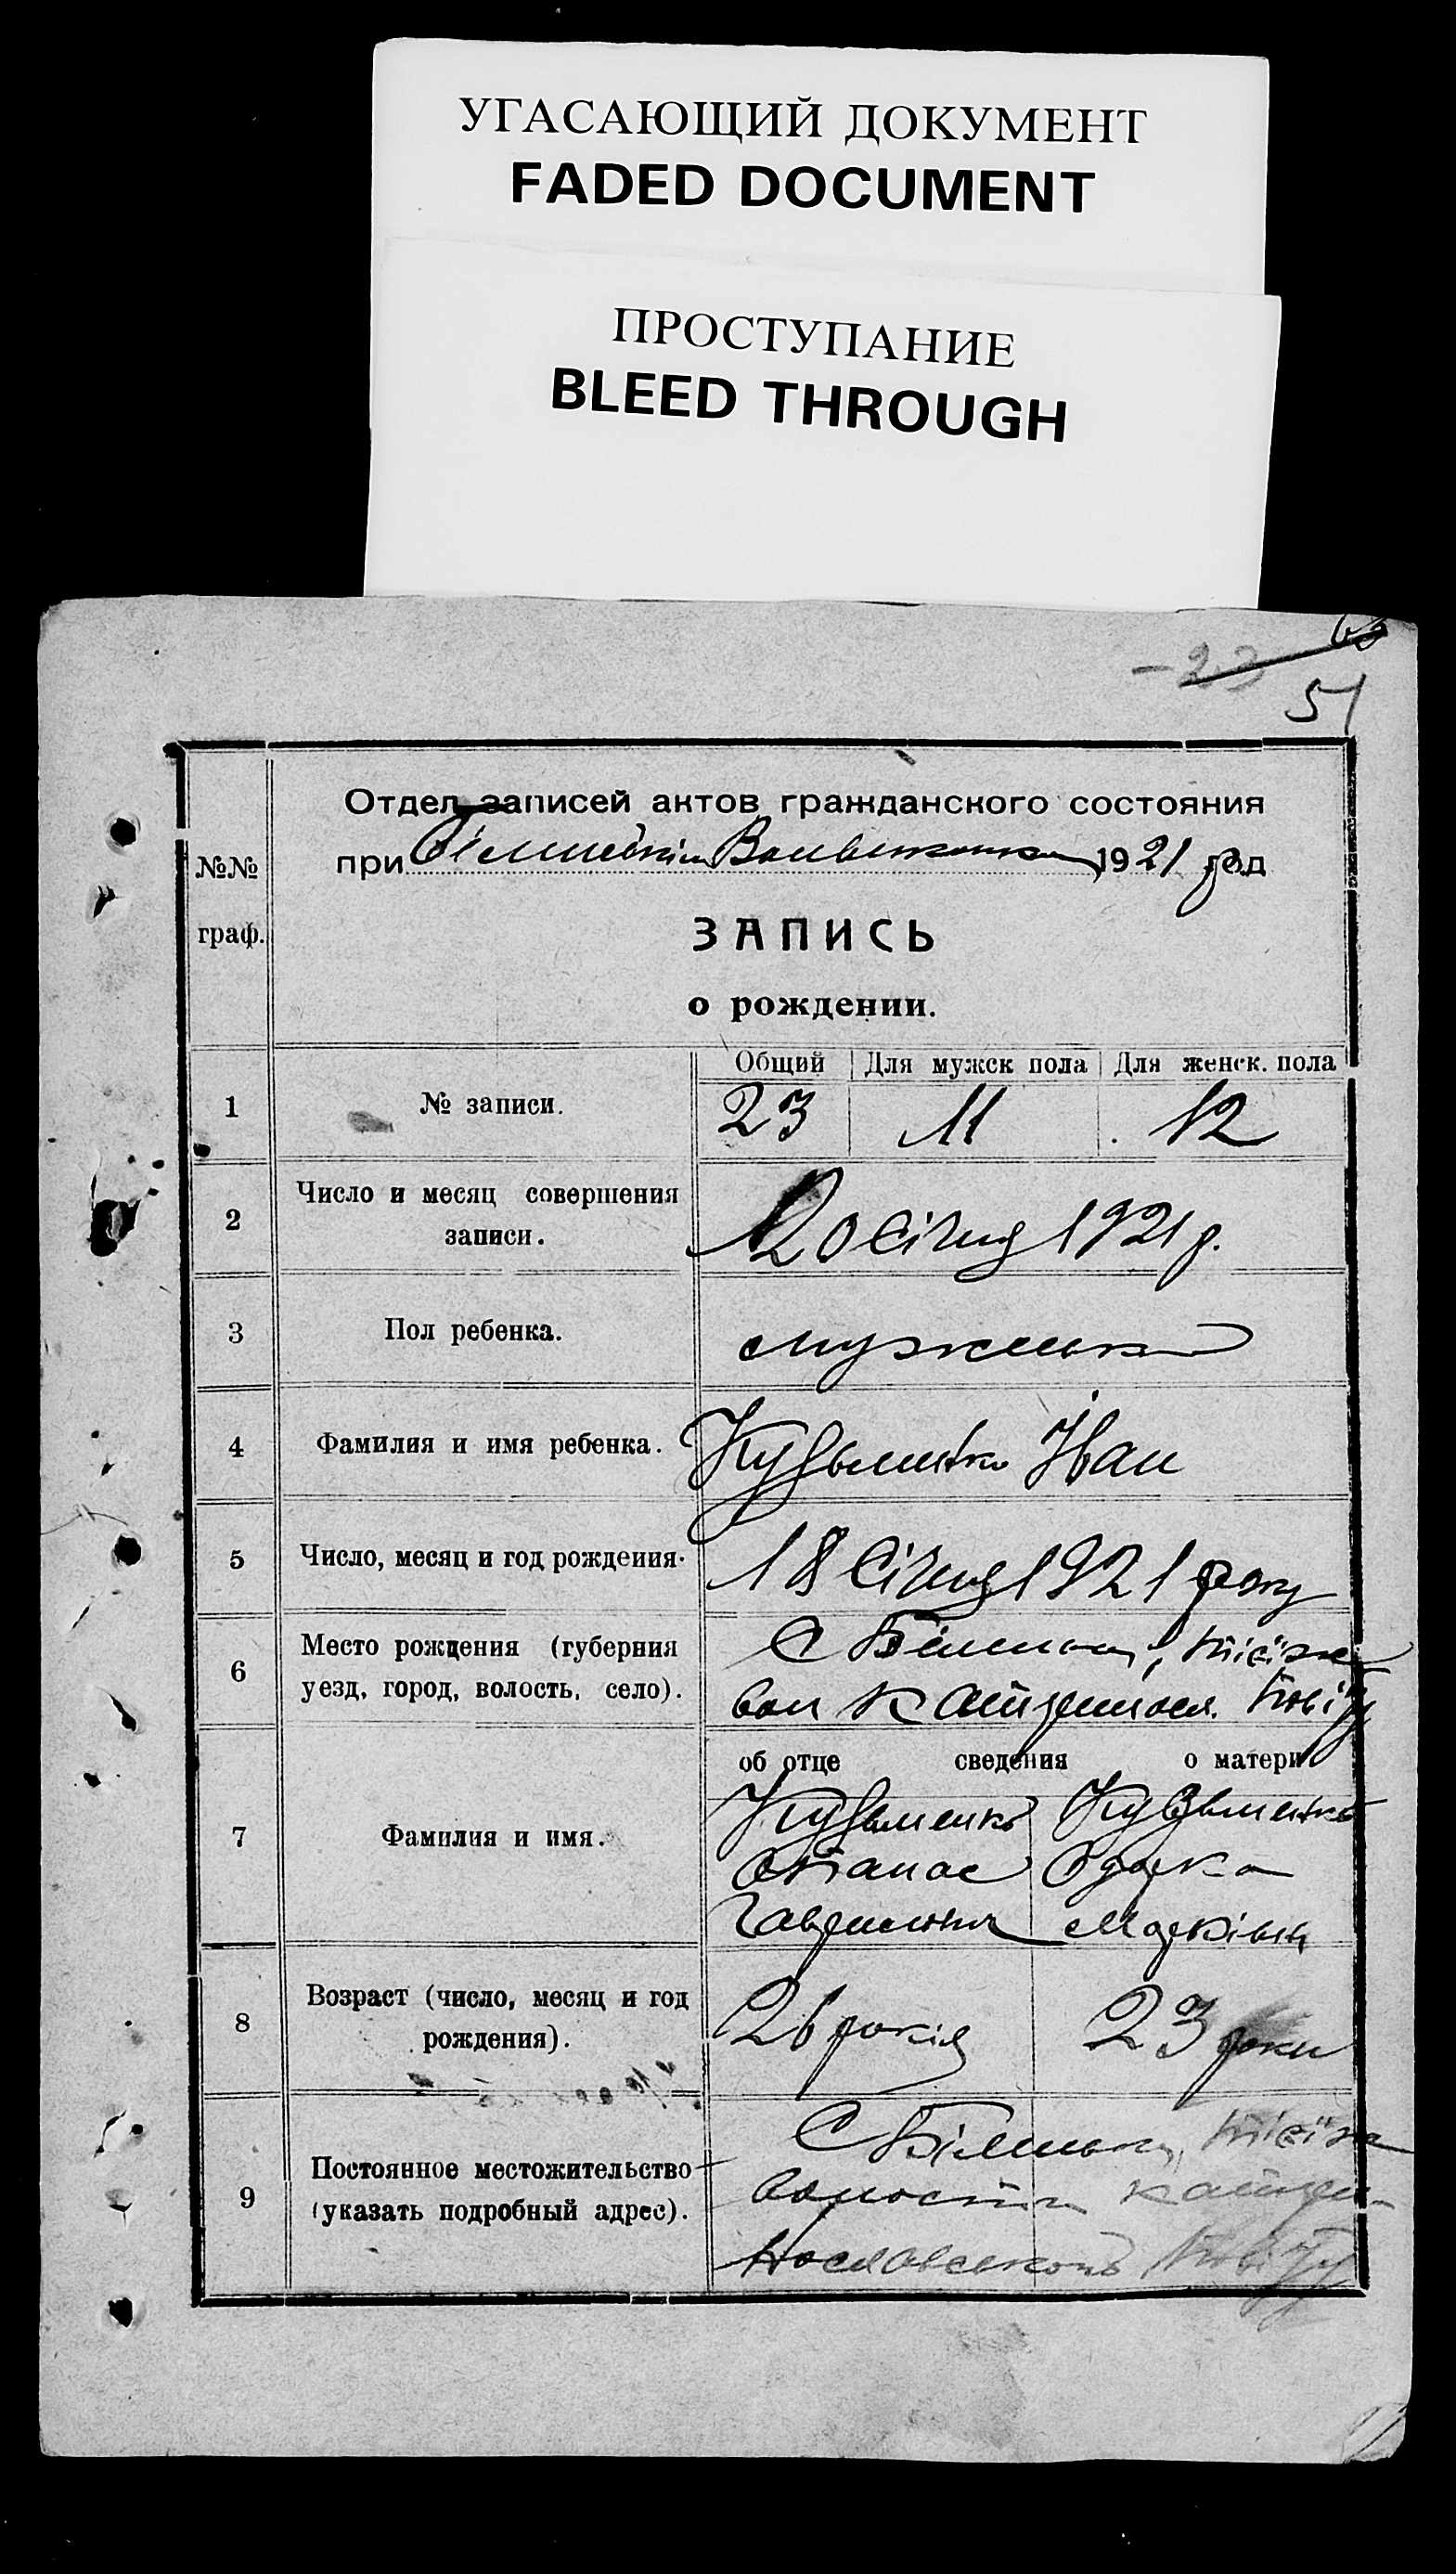 УГАСАЮЩИЙ ДОКУМЕНТ
FADED DOCUMENT
ПРОСТУПАНИЕ
BLEED THROUGH
-23
51
Отдел записей актов гражданского состояния
при 1921 год
№№
граф.
ЗАПИСЬ
о рождении.
Общий Для мужск пола Для женск. пола
1 № записи. 23 11 12
2 Число и месяц совершения
записи. 20 Січня 1921 р.
3 Пол ребенка.
4 Фамилия и имя ребенка. Кузьменко Іван
5 Число, месяц и год рождения. 18 Січня 1921 року
6 Место рождения (губерния
уезд, город, волость, село).
С
вол повіту
об отце сведения о матери
Кузьменко Кузьменко
7 Фамилия и имя. Опанас Одарка
8 Возраст (число, месяц и год
рождения). 26 років 23 роки
9 Постоянное местожительство
(указать подробный адрес).
С
волости катери-
нославського повіту